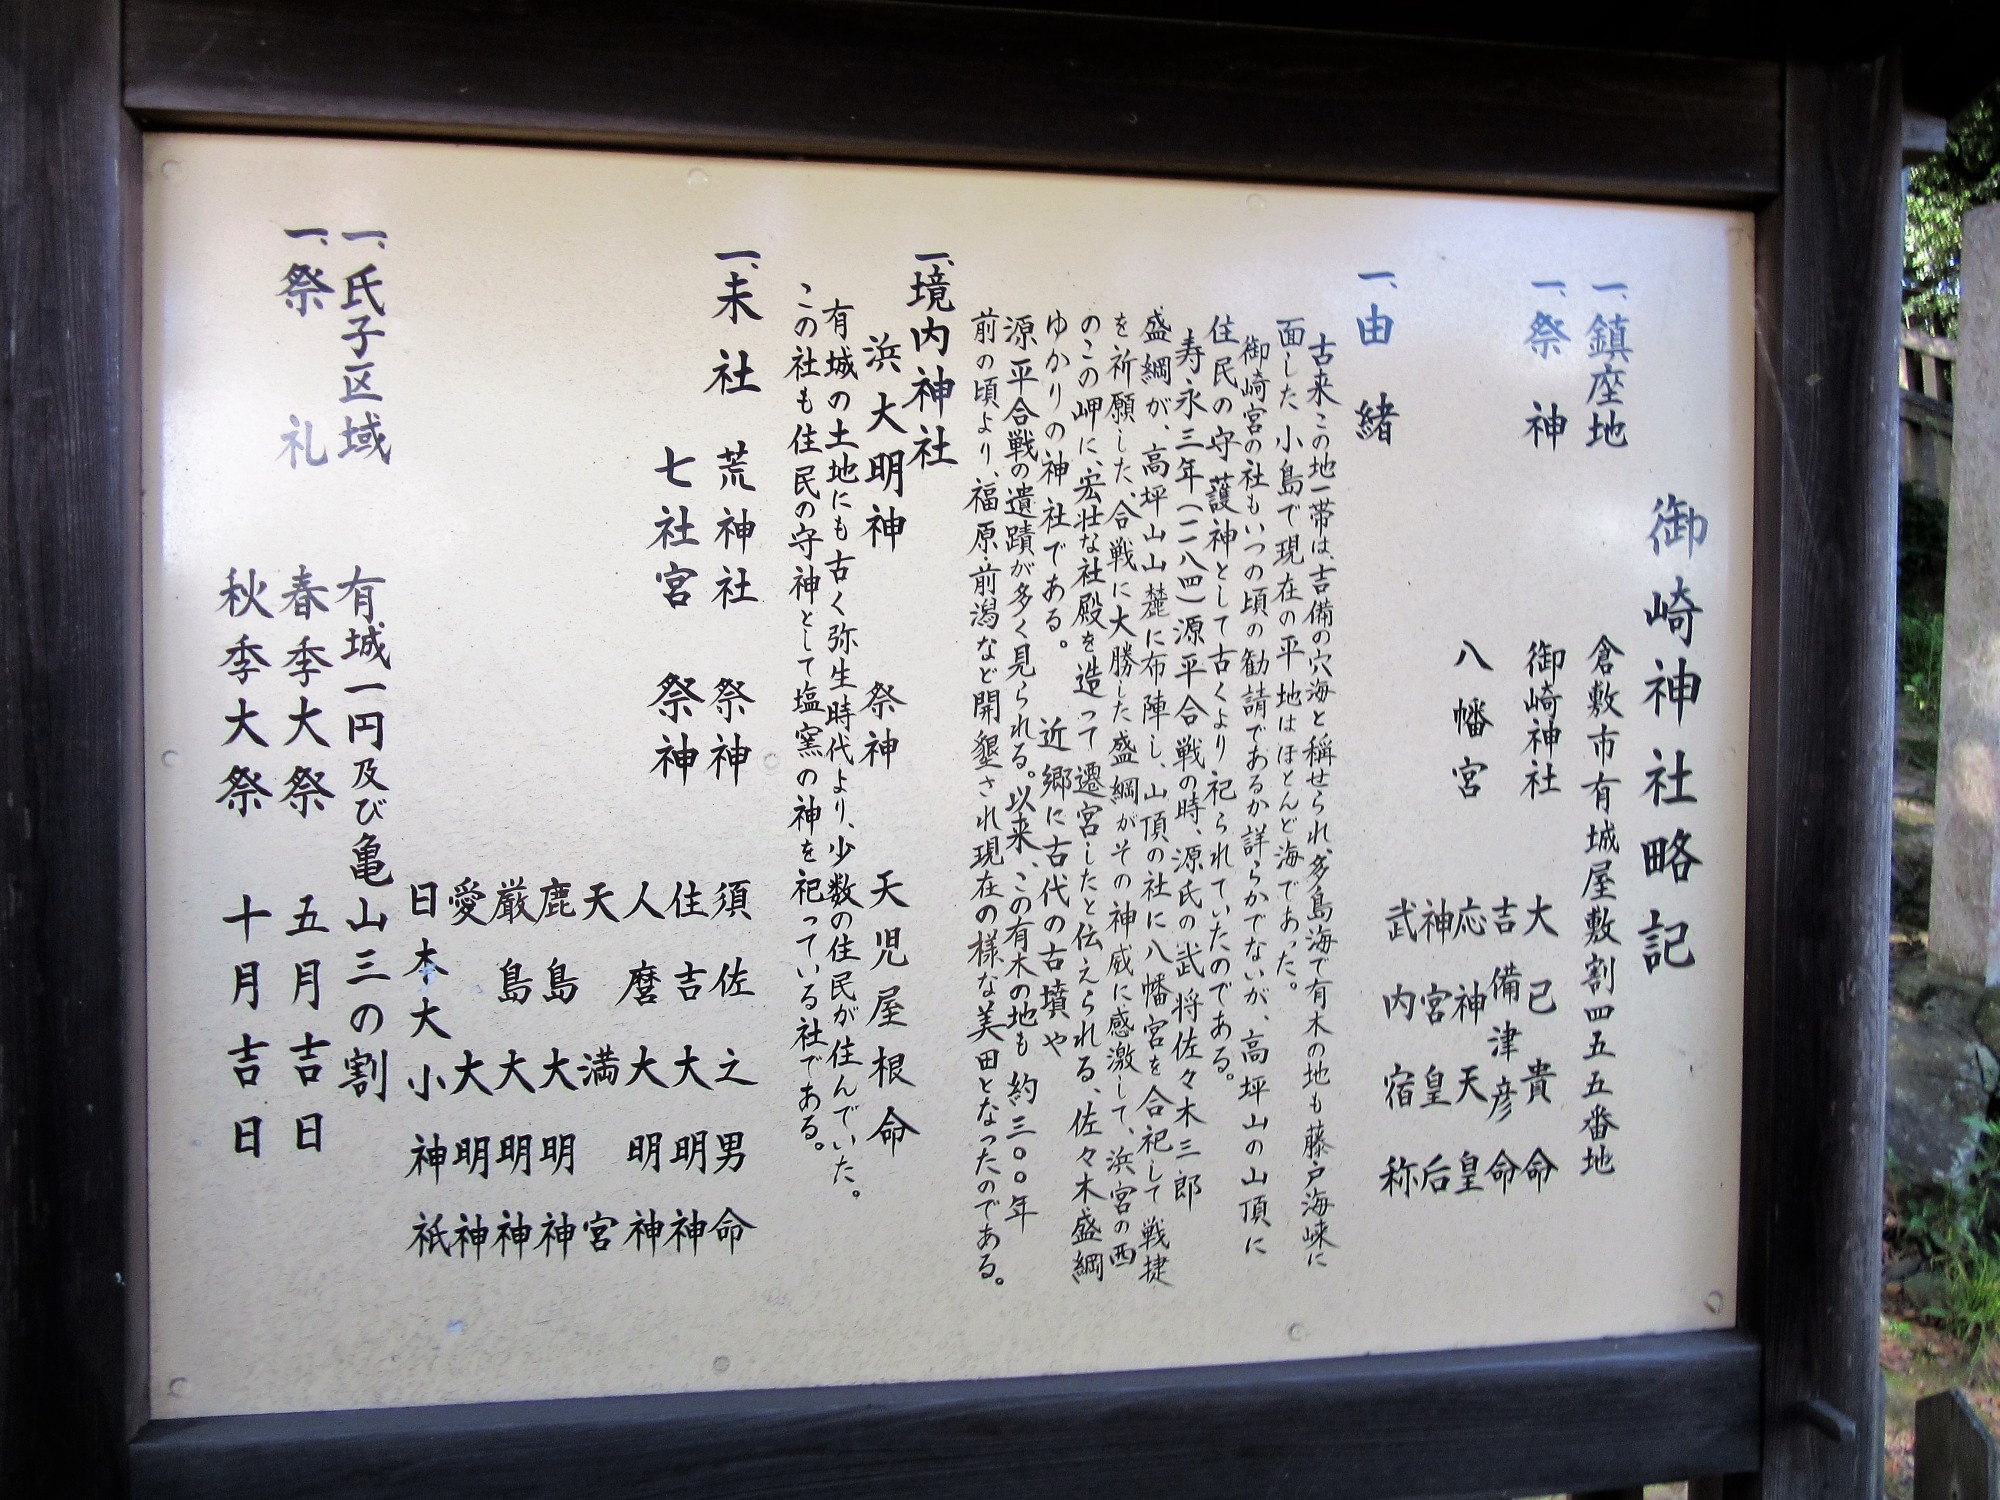 御崎神社略記
一、鎮座地 倉敷市有城屋敷割四五五番地
一、祭神 御崎神社 大己貴命
吉備津彦命
八幡宮 応神天皇
神宮皇后
武内宿称
一、由緒
古来この地一帯は、吉備の穴海と稱せられ、多島海で有木の地も藤戸海峡に
面した小島で現在の平地はほとんど海であった。
御崎宮の社もいつの頃の勧請であるか詳らかでないが、高坪山の山頂に
住民の守護神として古くより祀られていたのである。
寿永三年(一一八四)源平合戦の時、源氏の武将佐々木三郎
盛綱が、高坪山山麓に布陣し、山頂の社に八幡宮を合祀して戦捷
を祈願した、合戦に大勝した盛綱がその神威に感激して、浜宮の西
のこの岬に、宏壮な社殿を造って遷宮したと伝えられる、佐々木盛綱
ゆかりの神社である。 近郷に古代の古墳や
源平合戦の遺蹟が多く見られる。以来、この有木の地も約三〇〇年
前の頃より、福原・前潟など開墾され現在の様な美田となったのである。
一、境内神社
浜大明神 祭神 天児屋根命
有城の土地にも古く弥生時代より、少数の住民が住んでいた。
この社も住民の守神として塩窯の神を祀っている社である。
一、末社 荒神社 祭神 須佐之男命
七社宮 祭神 住吉大明神
人麿大明神
天満宮
鹿島大明神
厳島大明神
愛大明神
日本大小神祇
一、氏子区域 有城一円及び亀山三の割
一、祭礼 春季大祭 五月吉日
秋季大祭 十月吉日